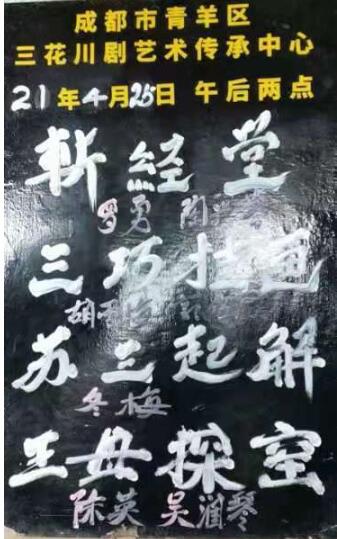 成都市青羊区
三花川剧艺术传承中心
21年4月25日 午后两点
斩经堂
罗勇
三巧挂画
苏三起解
冬梅
王母探窑
陈英 吴润琴